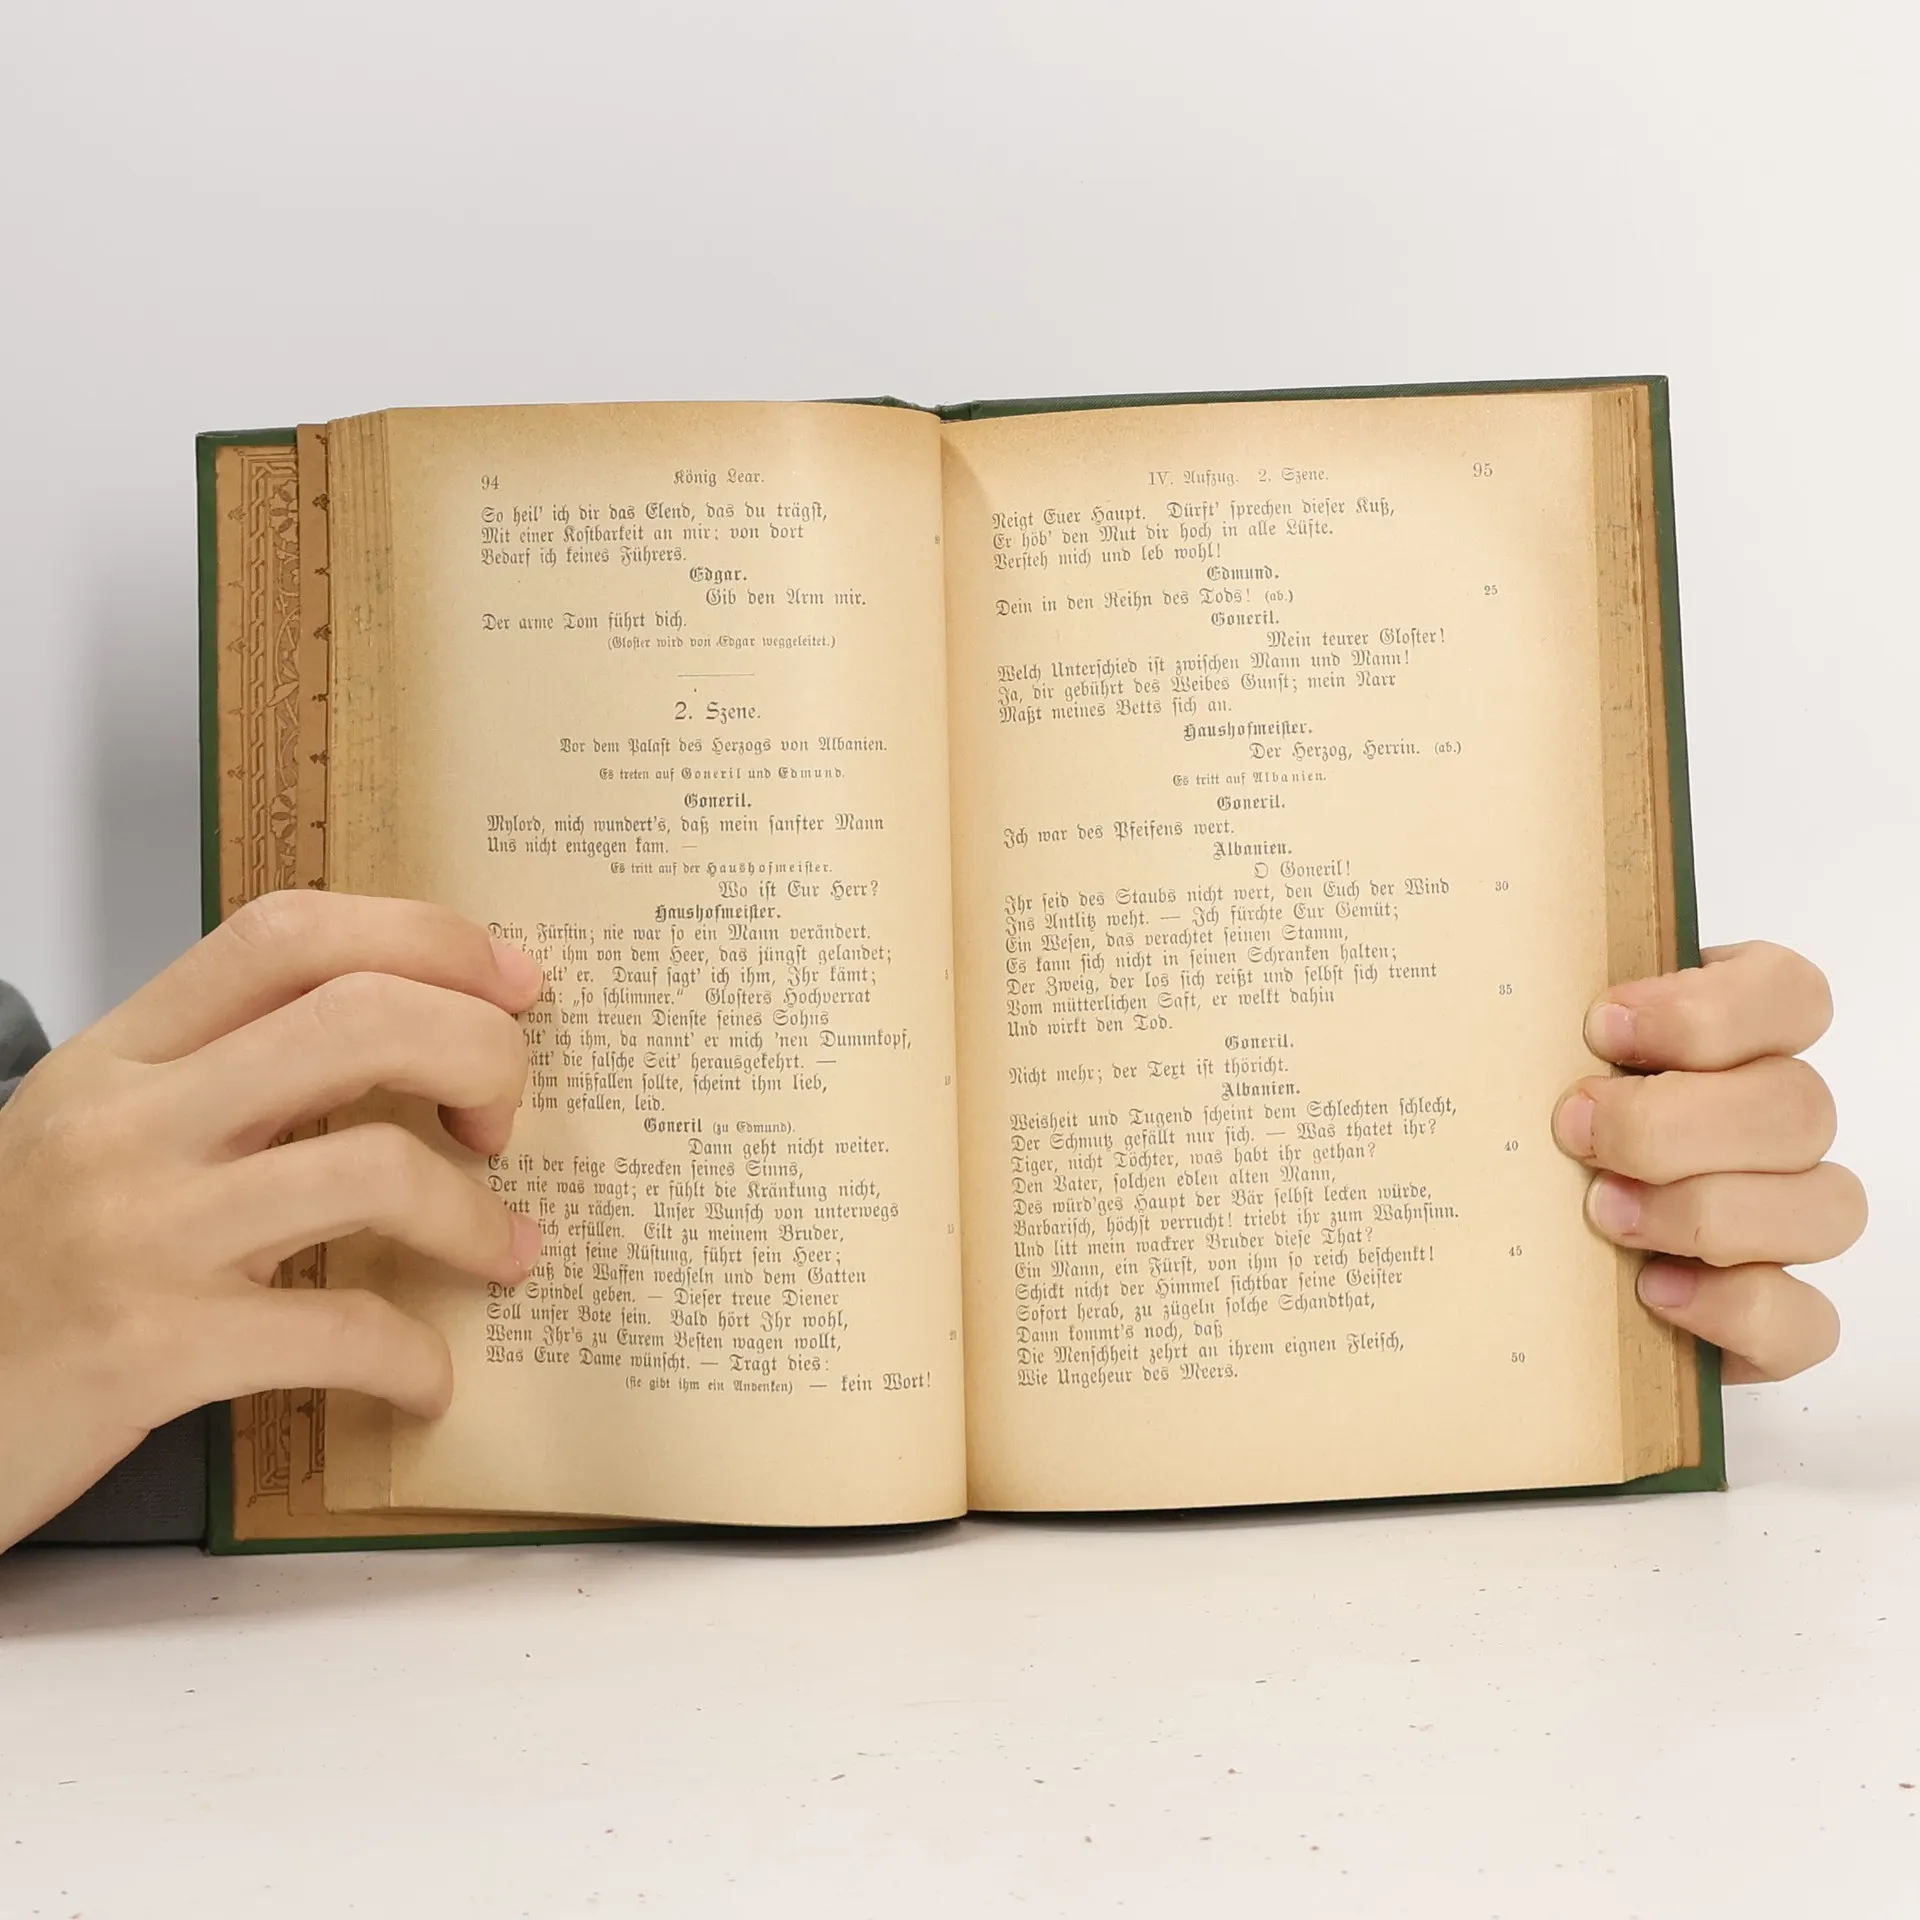 94 König Lear.
So heil' ich dir das Elend, das du trägst,
Mit einer Kostbarkeit an mir; von dort
Bedarf ich keines Führers.
Edgar.
Gib den Arm mir.
Der arme Tom führt dich.
(Gloster wird von Edgar weggeleitet.)
2. Szene.
Vor dem Palast des Herzogs von Albanien.
Es treten auf Goneril und Edmund.
Goneril.
Mylord, mich wundert's, daß mein sanfter Mann
Uns nicht entgegen kam. —
Es tritt auf der Haushofmeister.
Wo ist Eur Herr?
Haushofmeister.
Drin, Fürstin; nie war so ein Mann verändert.
ihm von dem Heer, das jüngst gelandet;
er. Drauf sagt' ich ihm, Ihr kämt; 5
„so schlimmer.“ Glosters Hochverrat
von dem treuen Dienste seines Sohns
ich ihm, da nannt' er mich 'nen Dummkopf,
die falsche Seit' herausgekehrt. —
ihm mißfallen sollte, scheint ihm lieb, 10
ihm gefallen, leid.
Goneril (zu Edmund).
Dann geht nicht weiter.
Es ist der feige Schrecken seines Sinns,
Der nie was wagt; er fühlt die Kränkung nicht,
sie zu rächen. Unser Wunsch von unterwegs
sich erfüllen. Eilt zu meinem Bruder, 15
seine Rüstung, führt sein Heer;
die Waffen wechseln und dem Gatten
Die Spindel geben. — Dieser treue Diener
Soll unser Bote sein. Bald hört Ihr wohl,
Wenn Ihr's zu Eurem Besten wagen wollt, 20
Was Eure Dame wünscht. — Tragt dies:
(sie gibt ihm ein Andenken) — kein Wort!
IV. Aufzug. 2. Szene. 95
Neigt Euer Haupt. Dürft' sprechen dieser Kuß,
Er höb' den Mut dir hoch in alle Lüfte.
Versteh mich und leb wohl!
Edmund.
Dein in den Reihn des Tods! (ab.) 25
Goneril.
Mein teurer Gloster!
Welch Unterschied ist zwischen Mann und Mann!
Ja, dir gebührt des Weibes Gunst; mein Narr
Maßt meines Betts sich an.
Haushofmeister.
Der Herzog, Herrin. (ab.)
Es tritt auf Albanien.
Goneril.
Ich war des Pfeifens wert.
Albanien.
O Goneril!
Ihr seid des Staubs nicht wert, den Euch der Wind 30
Ins Antlitz weht. — Ich fürchte Eur Gemüt;
Ein Wesen, das verachtet seinen Stamm,
Es kann sich nicht in seinen Schranken halten;
Der Zweig, der los sich reißt und selbst sich trennt
Vom mütterlichen Saft, er welkt dahin 35
Und wirkt den Tod.
Goneril.
Nicht mehr; der Text ist thöricht.
Albanien.
Weisheit und Tugend scheint dem Schlechten schlecht,
Der Schmutz gefällt nur sich. — Was thatet ihr?
Tiger, nicht Töchter, was habt ihr gethan? 40
Den Vater, solchen edlen alten Mann,
Des würd'ges Haupt der Bär selbst lecken würde,
Barbarisch, höchst verrucht! triebt ihr zum Wahnsinn.
Und litt mein wackrer Bruder diese That?
Ein Mann, ein Fürst, von ihm so reich beschenkt! 45
Schickt nicht der Himmel sichtbar seine Geister
Sofort herab, zu zügeln solche Schandthat,
Dann kommt's noch, daß
Die Menschheit zehrt an ihrem eignen Fleisch,
Wie Ungeheur des Meers. 50